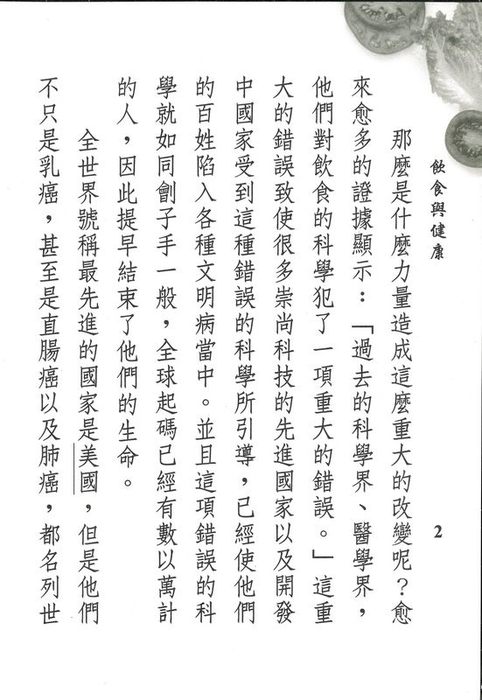 飲食與健康
2
那麼是什麼力量造成這麼重大的改變呢？愈
來愈多的證據顯示：「過去的科學界、醫學界，
他們對飲食的科學犯了一項重大的錯誤。」這重
大的錯誤致使很多崇尚科技的先進國家以及開發
中國家受到這種錯誤的科學所引導，已經使他們
的百姓陷入各種文明病當中。並且這項錯誤的科
學就如同劊子手一般，全球起碼已經有數以萬計
的人，因此提早結束了他們的生命。
全世界號稱最先進的國家是美國，但是他們
不只是乳癌，甚至是直腸癌以及肺癌，都名列世